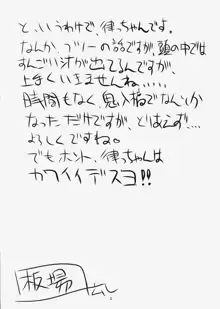 と、いうわけで、律っちゃんです。
なんか、フリーの話ですが、頭の中では
すんごい汁が出てるんですが、
上手くいきませんね、、、、、
時間もなく、鬼入稿でなんしか
なったただけですが、とりあえず、、、、
よろしくですね。
でもホント、律っちゃんは
カワイイデスヨ!!
板場広し